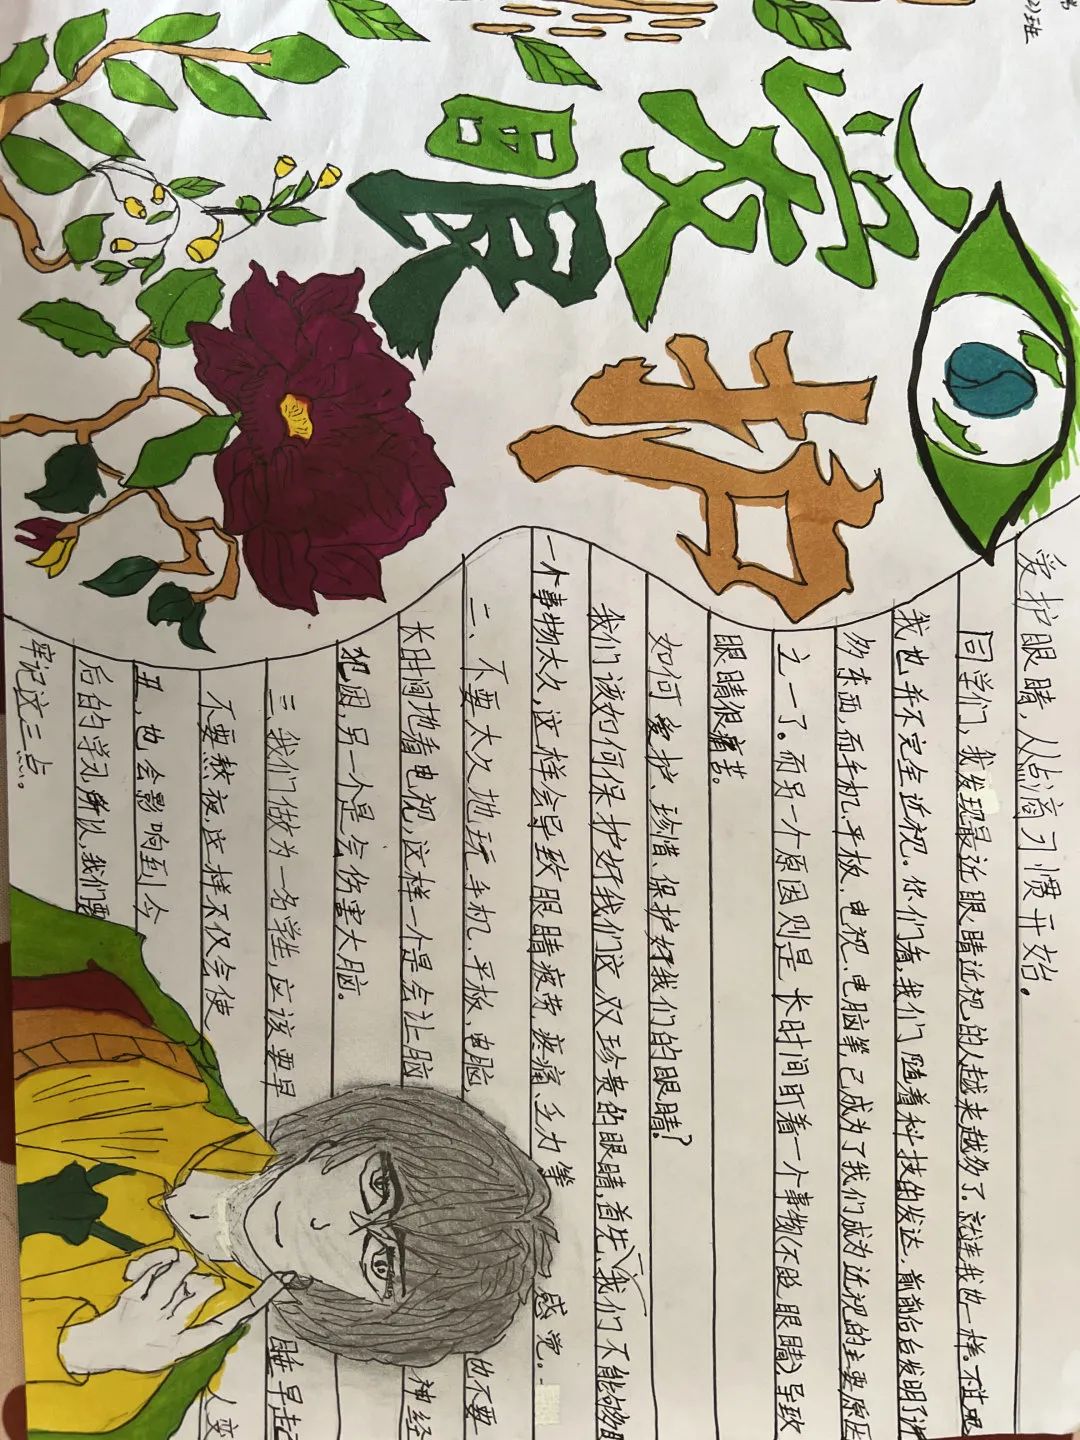 2)班
爱护
眼
爱护眼睛，从点滴习惯开始。
同学们，我发现最近眼睛近视的人越来越多了。就连我也一样。不过
我也并不完全近视。你们看，我们随着科技的发达，前前后后发明了许
多东西，而手机、平板、电视、电脑等，已成为了我们成为近视的主要原因
之一了。而另一个原因则是长时间盯着一个事物(不眨眼睛)，导致
眼睛很痛苦。
如何爱护、珍惜、保护好我们的眼睛?
我们该如何保护好我们这双珍贵的眼睛，首先、我们不能够
一个事物太久，这样会导致眼睛疲劳、疼痛、乏力等感觉。
二、不要太久地玩手机、平板、电脑，也不要
长时间地看电视，这样一个是会让脑神经
犯困，另一个是会伤害大脑。
三、我们做为一名学生，应该要早睡早起
不要熬夜，这样不仅会使人变
丑，也会影响到今
后的学习，所以，我们要
牢记这三点。